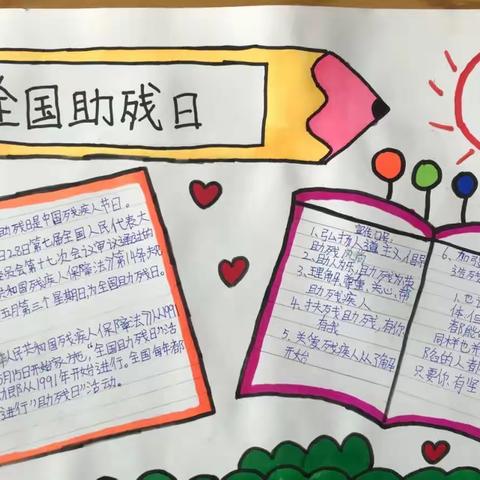 全国助残日
助残日是中国残疾人节日。
月28日第七届全国人民代表大
委员会第十七次会议审议通过的
共和国残疾人保障法》第14条规
五月第三个星期日为全国助残日。
人民共和国残疾人保障法》从1991
5月15日开始实施,"全国助残日"活
动即从1991年开始进行。全国每年都
进行"助残日"活动。
宣传口号:
1.弘扬人道主义,倡导
助残
2.助人为乐,助残为荣
3.理解、尊重、关心、帮
助残疾人
4.扶残助残,有你
有我
5.关爱残疾人从了解
开始
6.
进残
1.也
体,但
都能
同样也
的人都
只要你有坚